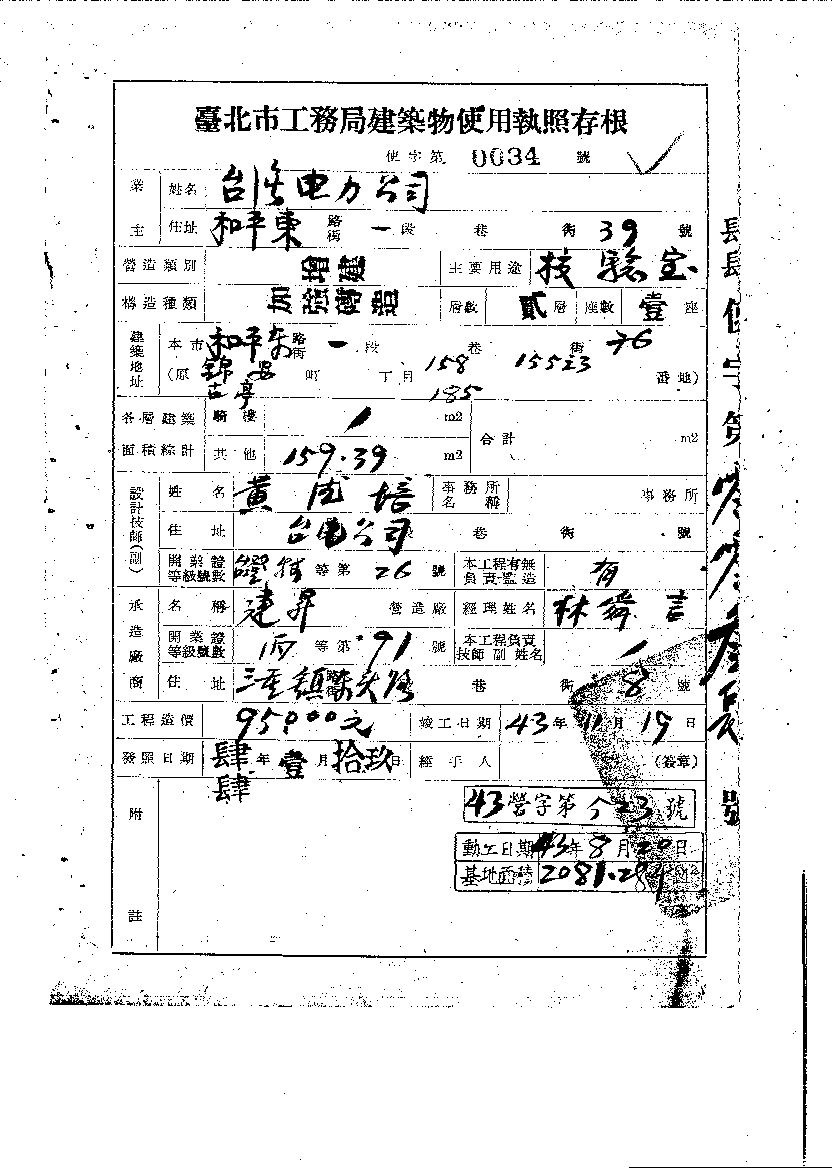 臺北市工務局建築物使用執照存根
使字第 0034 號
業主 姓名 台灣電力公司
住址 和平東 路街 一 段 巷 街 39 號
營造類別 增建 主要用途 技驗室
構造種類 加強磚造 層數 貳 層 座數 壹 座
建築地址 本市 和平东 路街 一 段 巷 街 76
(原 錦安 古亭 町 丁目 158 185 15523 番地)
各層建築面積綜計 騎樓 / m2 合計 m2
其他 159.39 m2
設計技師(副) 姓名 黃 培 事務所名稱 事務所
住址 台电公司 段 巷 街 號
開業證等級號數 等第 26 號 本工程有無負責監造 有
承造廠商 名稱 建昇 營造廠 經理姓名 林舜言
開業證等級號數 丙 等第 91 號 本工程負責技師副姓名 /
住址 三重鎮 路 巷 街 8 號
工程造價 95000元 竣工日期 43 年 11 月 19 日
發照日期 肆肆 年 壹 月 拾玖 日 經手人 (簽章)
附註
43營字第523號
動工日期43年8月20日
基地面積 2081.284 m2
肆肆使字第零零叁肆號